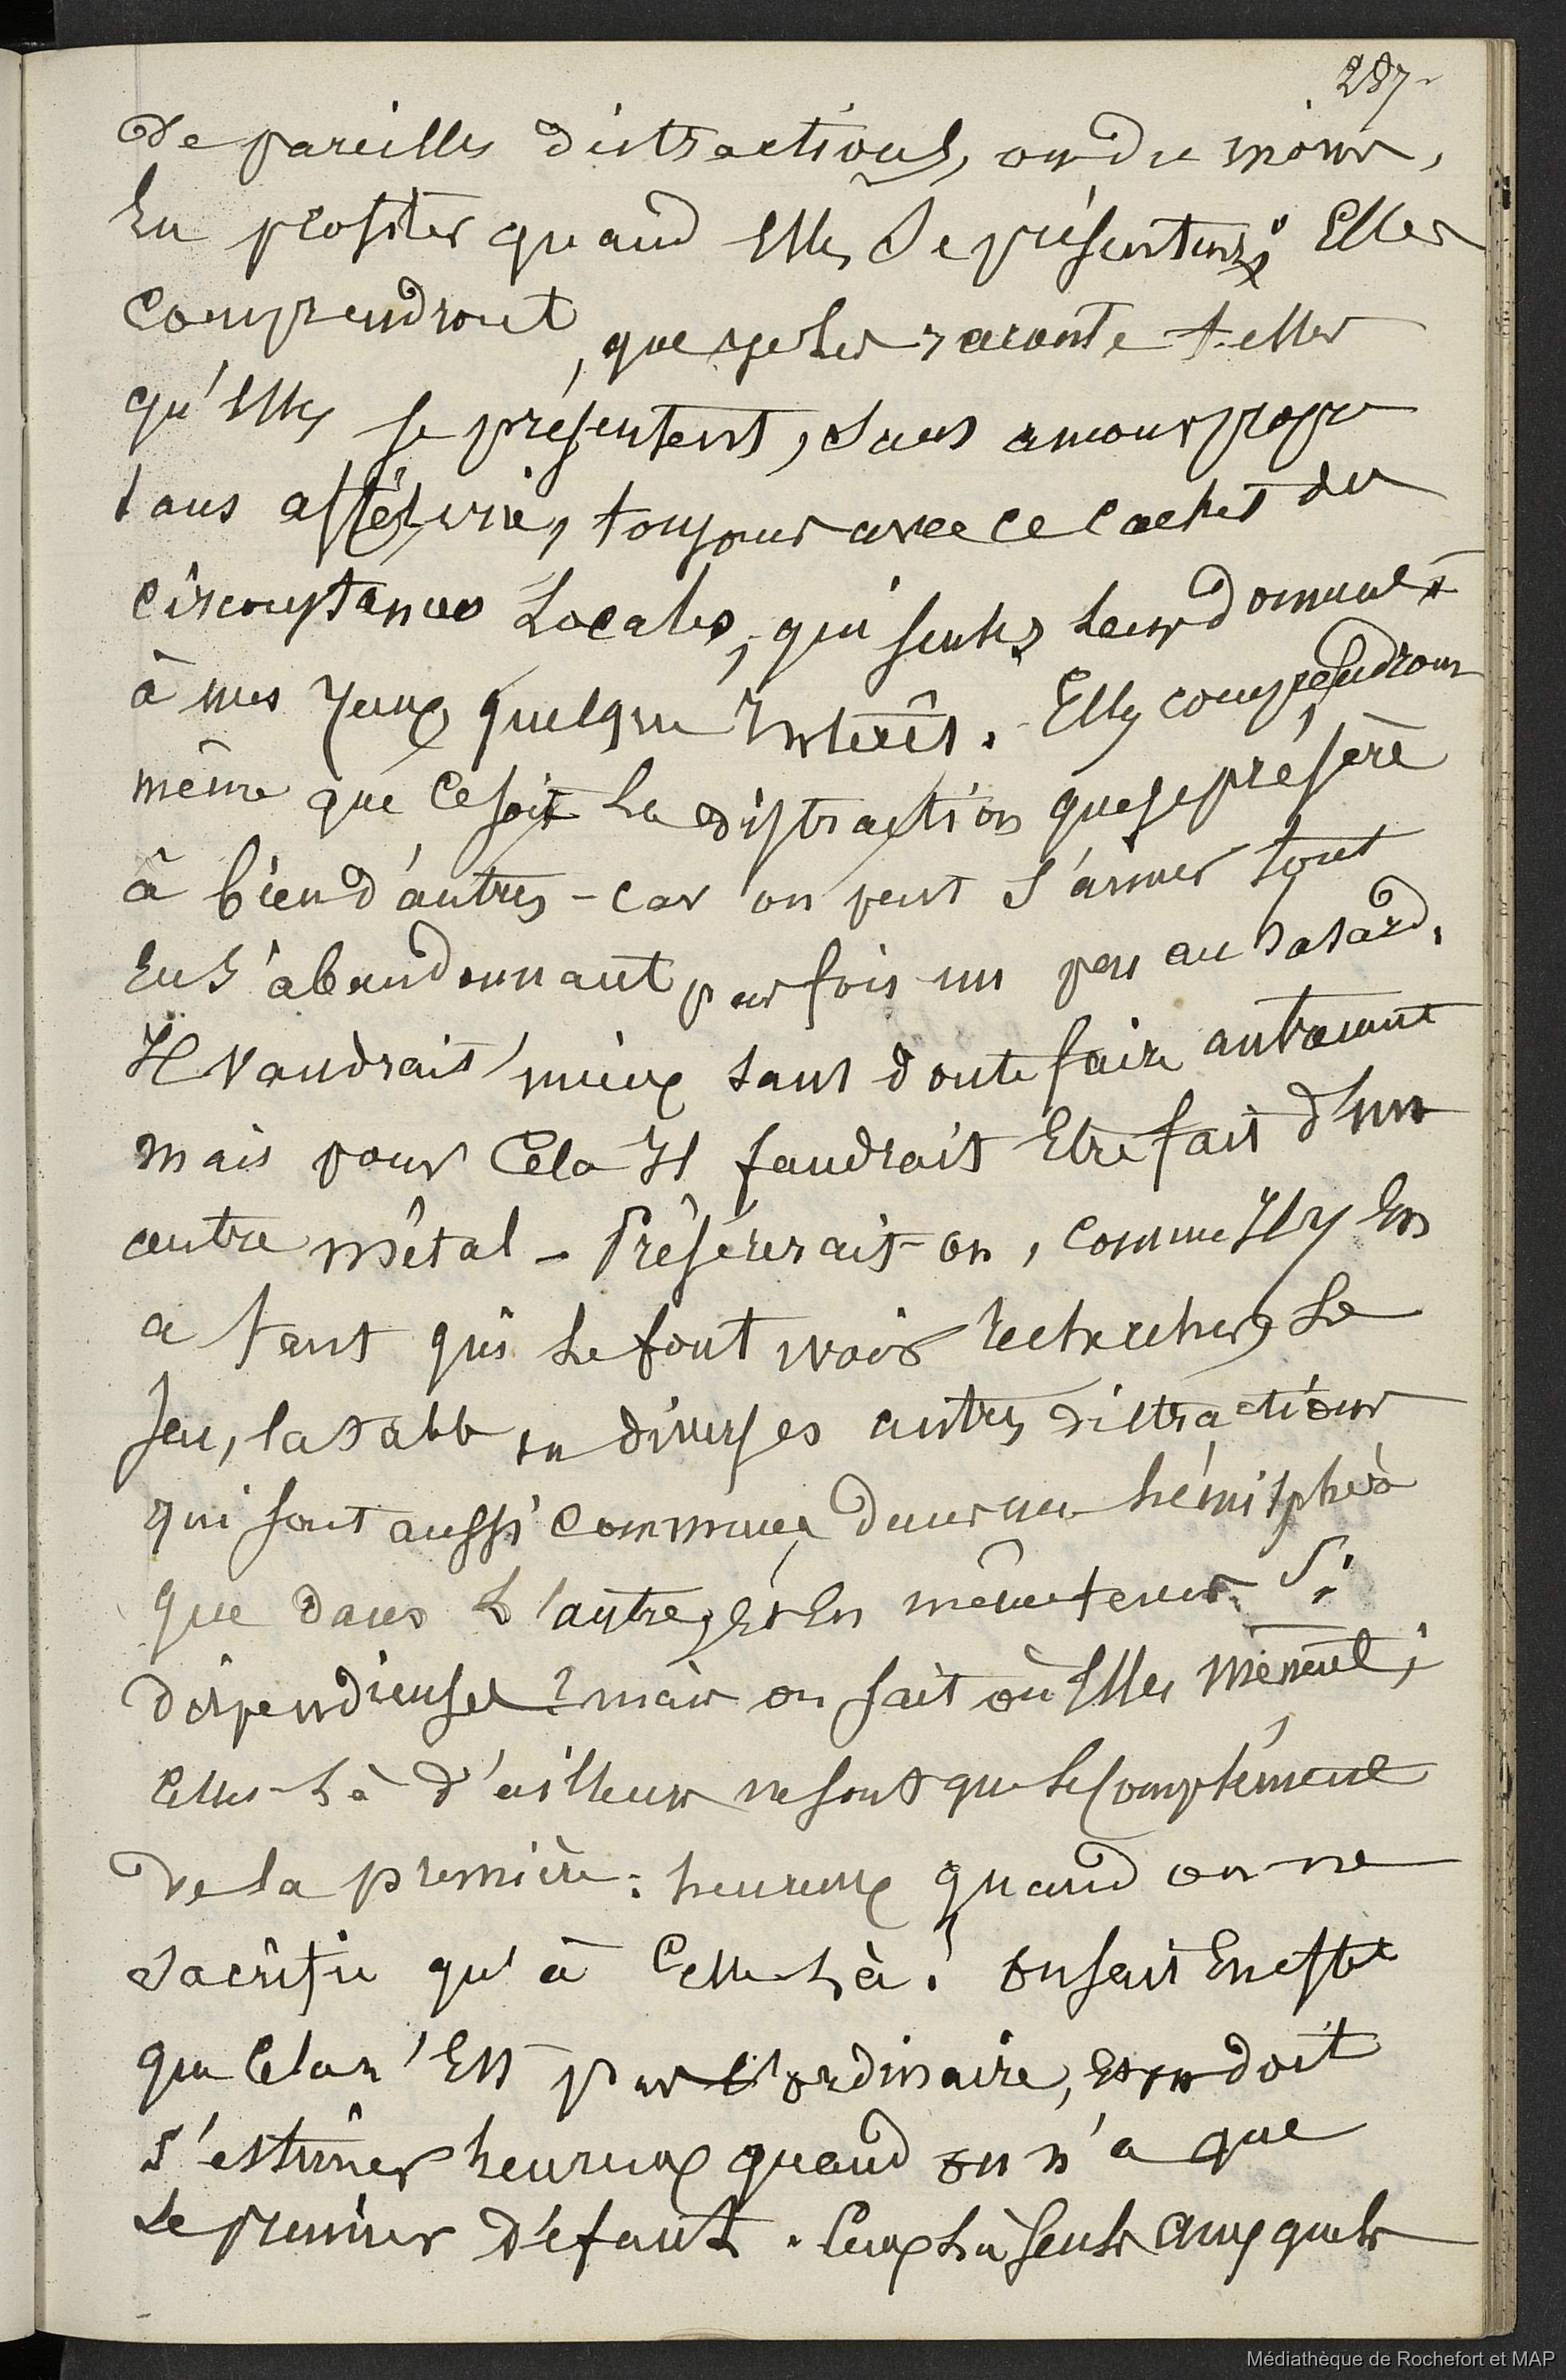 287
de pareilles distractions, ou du moins,
En profiter quand Elles Se présentent; Elles
Comprendront, que je les raconte telles
qu'Elles se présentent, sans amour propre
sans afféterie, toujours avec ce cachet des
circonstances Locales, qui seules leur donnent
à mes yeux quelque Interêt. Elles comprendront
même que ce soit la distraction que je préfère
à bien d'autres - car on peut s'aimer tout
En S'abandonnant parfois un peu au hasard,
Il vaudrait mieux sans doute faire autrement
mais pour Cela Il faudrait Etre fait d'un
autre métal - Préférerait-on, comme Il y En
a tant qui le font voir rechercher Le
Jeu, la table ou diverses autres distractions
qui sont aussi communes dans un hémisphère
que dans L'autre, Et En même tems Si
dispendieuses? mais on sait où Elles mènent;
Celles-là d'ailleurs ne sont que le Complément
de la première: heureux quand on ne
sacrifie qu'à Celle-là! on sait En effet
que Cela n'Est pas l'ordinaire, Et on doit
s'estimer heureux quand on n'a que
Le premier défaut. Ceux là seuls auxquels
Médiathèque de Rochefort et MAP